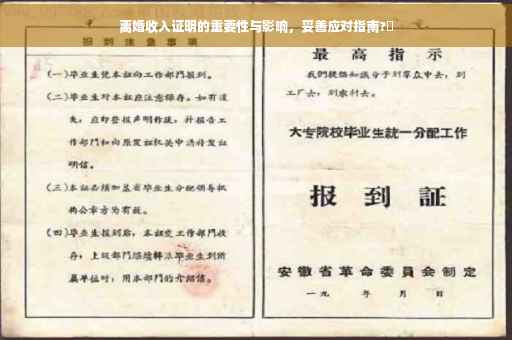 离婚收入证明的重要性与影响，妥善应对指南?
报到注意事项
(一)毕业生凭本证向工作部门报到。
(二)毕业生对本证应注意保存。如有遗
失，应即登报声明作废，并报告工
作部门和向原发证机关申请补发证
明信。
(三)本证必须加盖省毕业生分配领导机
构公章方为有效。
(四)毕业生报到后，本证交工作部门收
存；上级部门
毕业生到所
属单位时，用本部门的介绍信。
最高指示
我们提倡知识分子到群众中去，到
工厂去，到农村去。
大专院校毕业生統一分配工作
报到証
安徽省革命委員会制定
一九 年 月 日